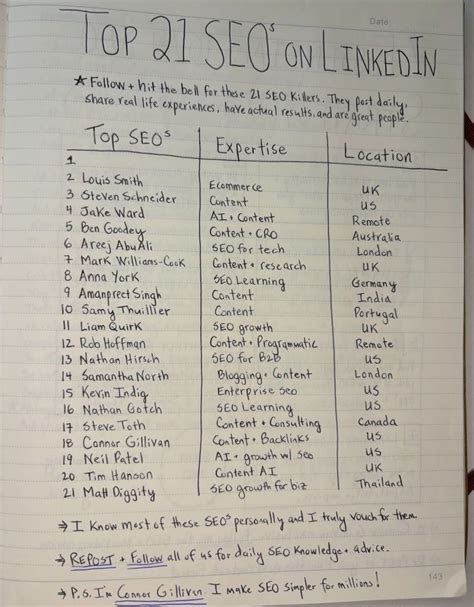 Date:
TOP 21 SEOs ON LINKEDIN
★ Follow + hit the bell for these 21 SEO Killers. They post daily,
share real life experiences, have actual results, and are great people.
Top SEOs Expertise Location
1
2 Louis Smith Ecommerce UK
3 Steven Schneider Content US
4 Jake Ward AI + Content Remote
5 Ben Goodey Content + CRO Australia
6 Areej AbuAli SEO for tech London
7 Mark Williams-Cook Content + research UK
8 Anna York SEO Learning Germany
9 Amanpreet Singh Content India
10 Samy Thuillier Content Portugal
11 Liam Quirk SEO growth UK
12 Rob Hoffman Content + Programmatic Remote
13 Nathan Hirsch SEO for B2B US
14 Samantha North Blogging + Content London
15 Kevin Indig Enterprise SEO US
16 Nathan Gotch SEO Learning US
17 Steve Toth Content + Consulting Canada
18 Connor Gillivan Content + Backlinks US
19 Neil Patel AI + growth w/ SEO US
20 Tim Hanson Content AI UK
21 Matt Diggity SEO growth for biz Thailand
→ I know most of these SEOs personally and I truly vouch for them
→ REPOST + Follow all of us for daily SEO Knowledge + advice.
→ P.S. I'm Connor Gillivan. I make SEO simpler for millions!
143